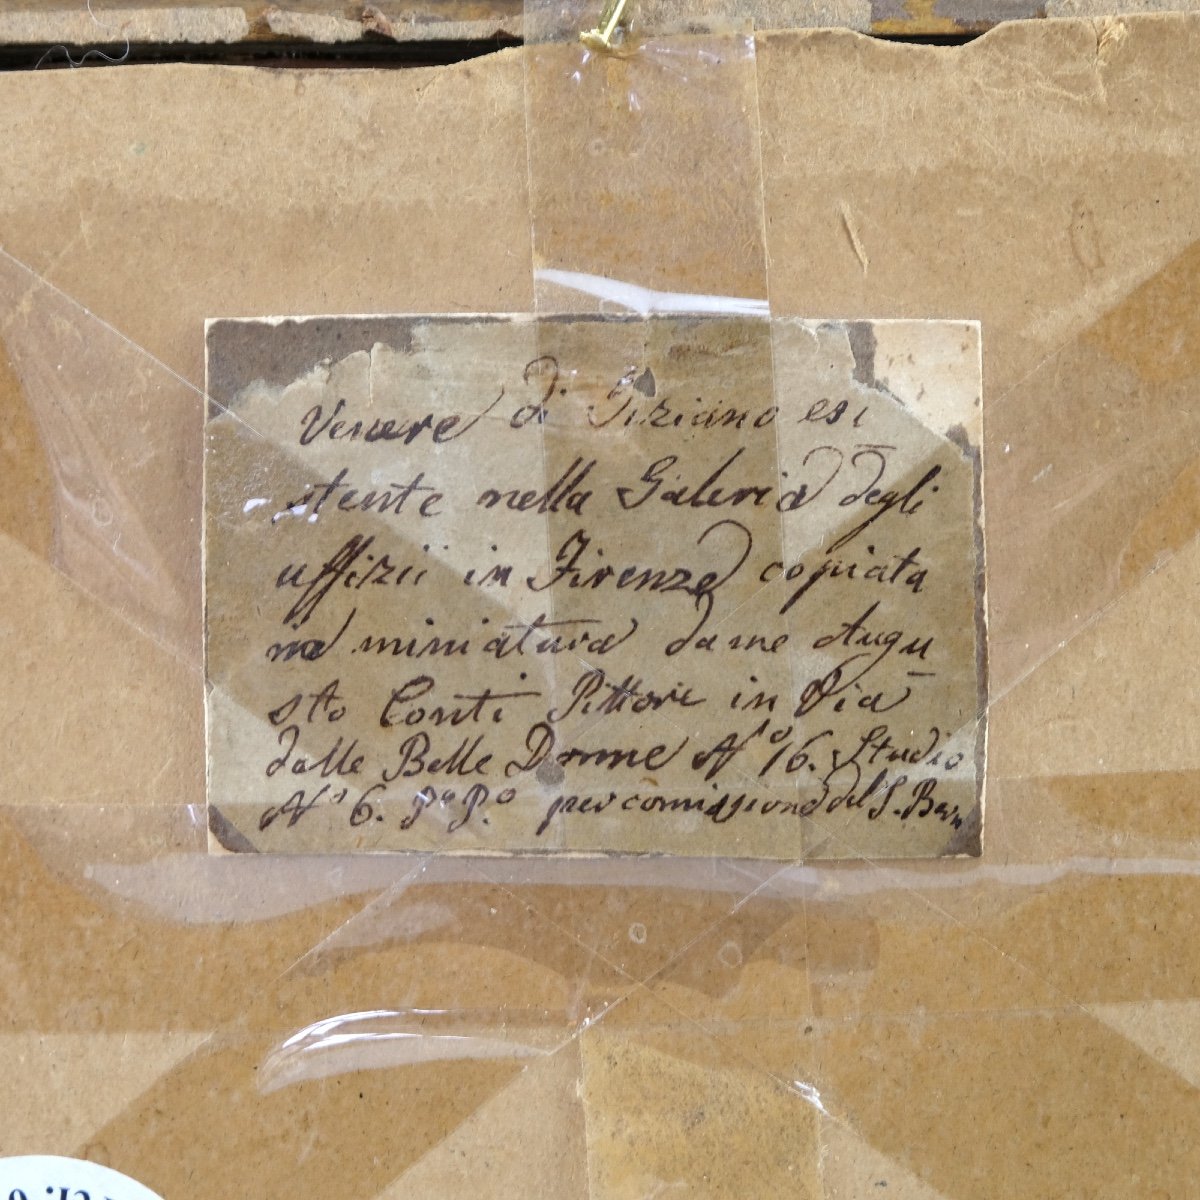 Venere di Tiziano esi
stente nella Galeria degli
uffizii in Firenze copiata
in miniatura da me Augu
sto Conti Pittore in Via
delle Belle Donne No 16. Studio
No 6. Po P.o per comissione del S. Bern